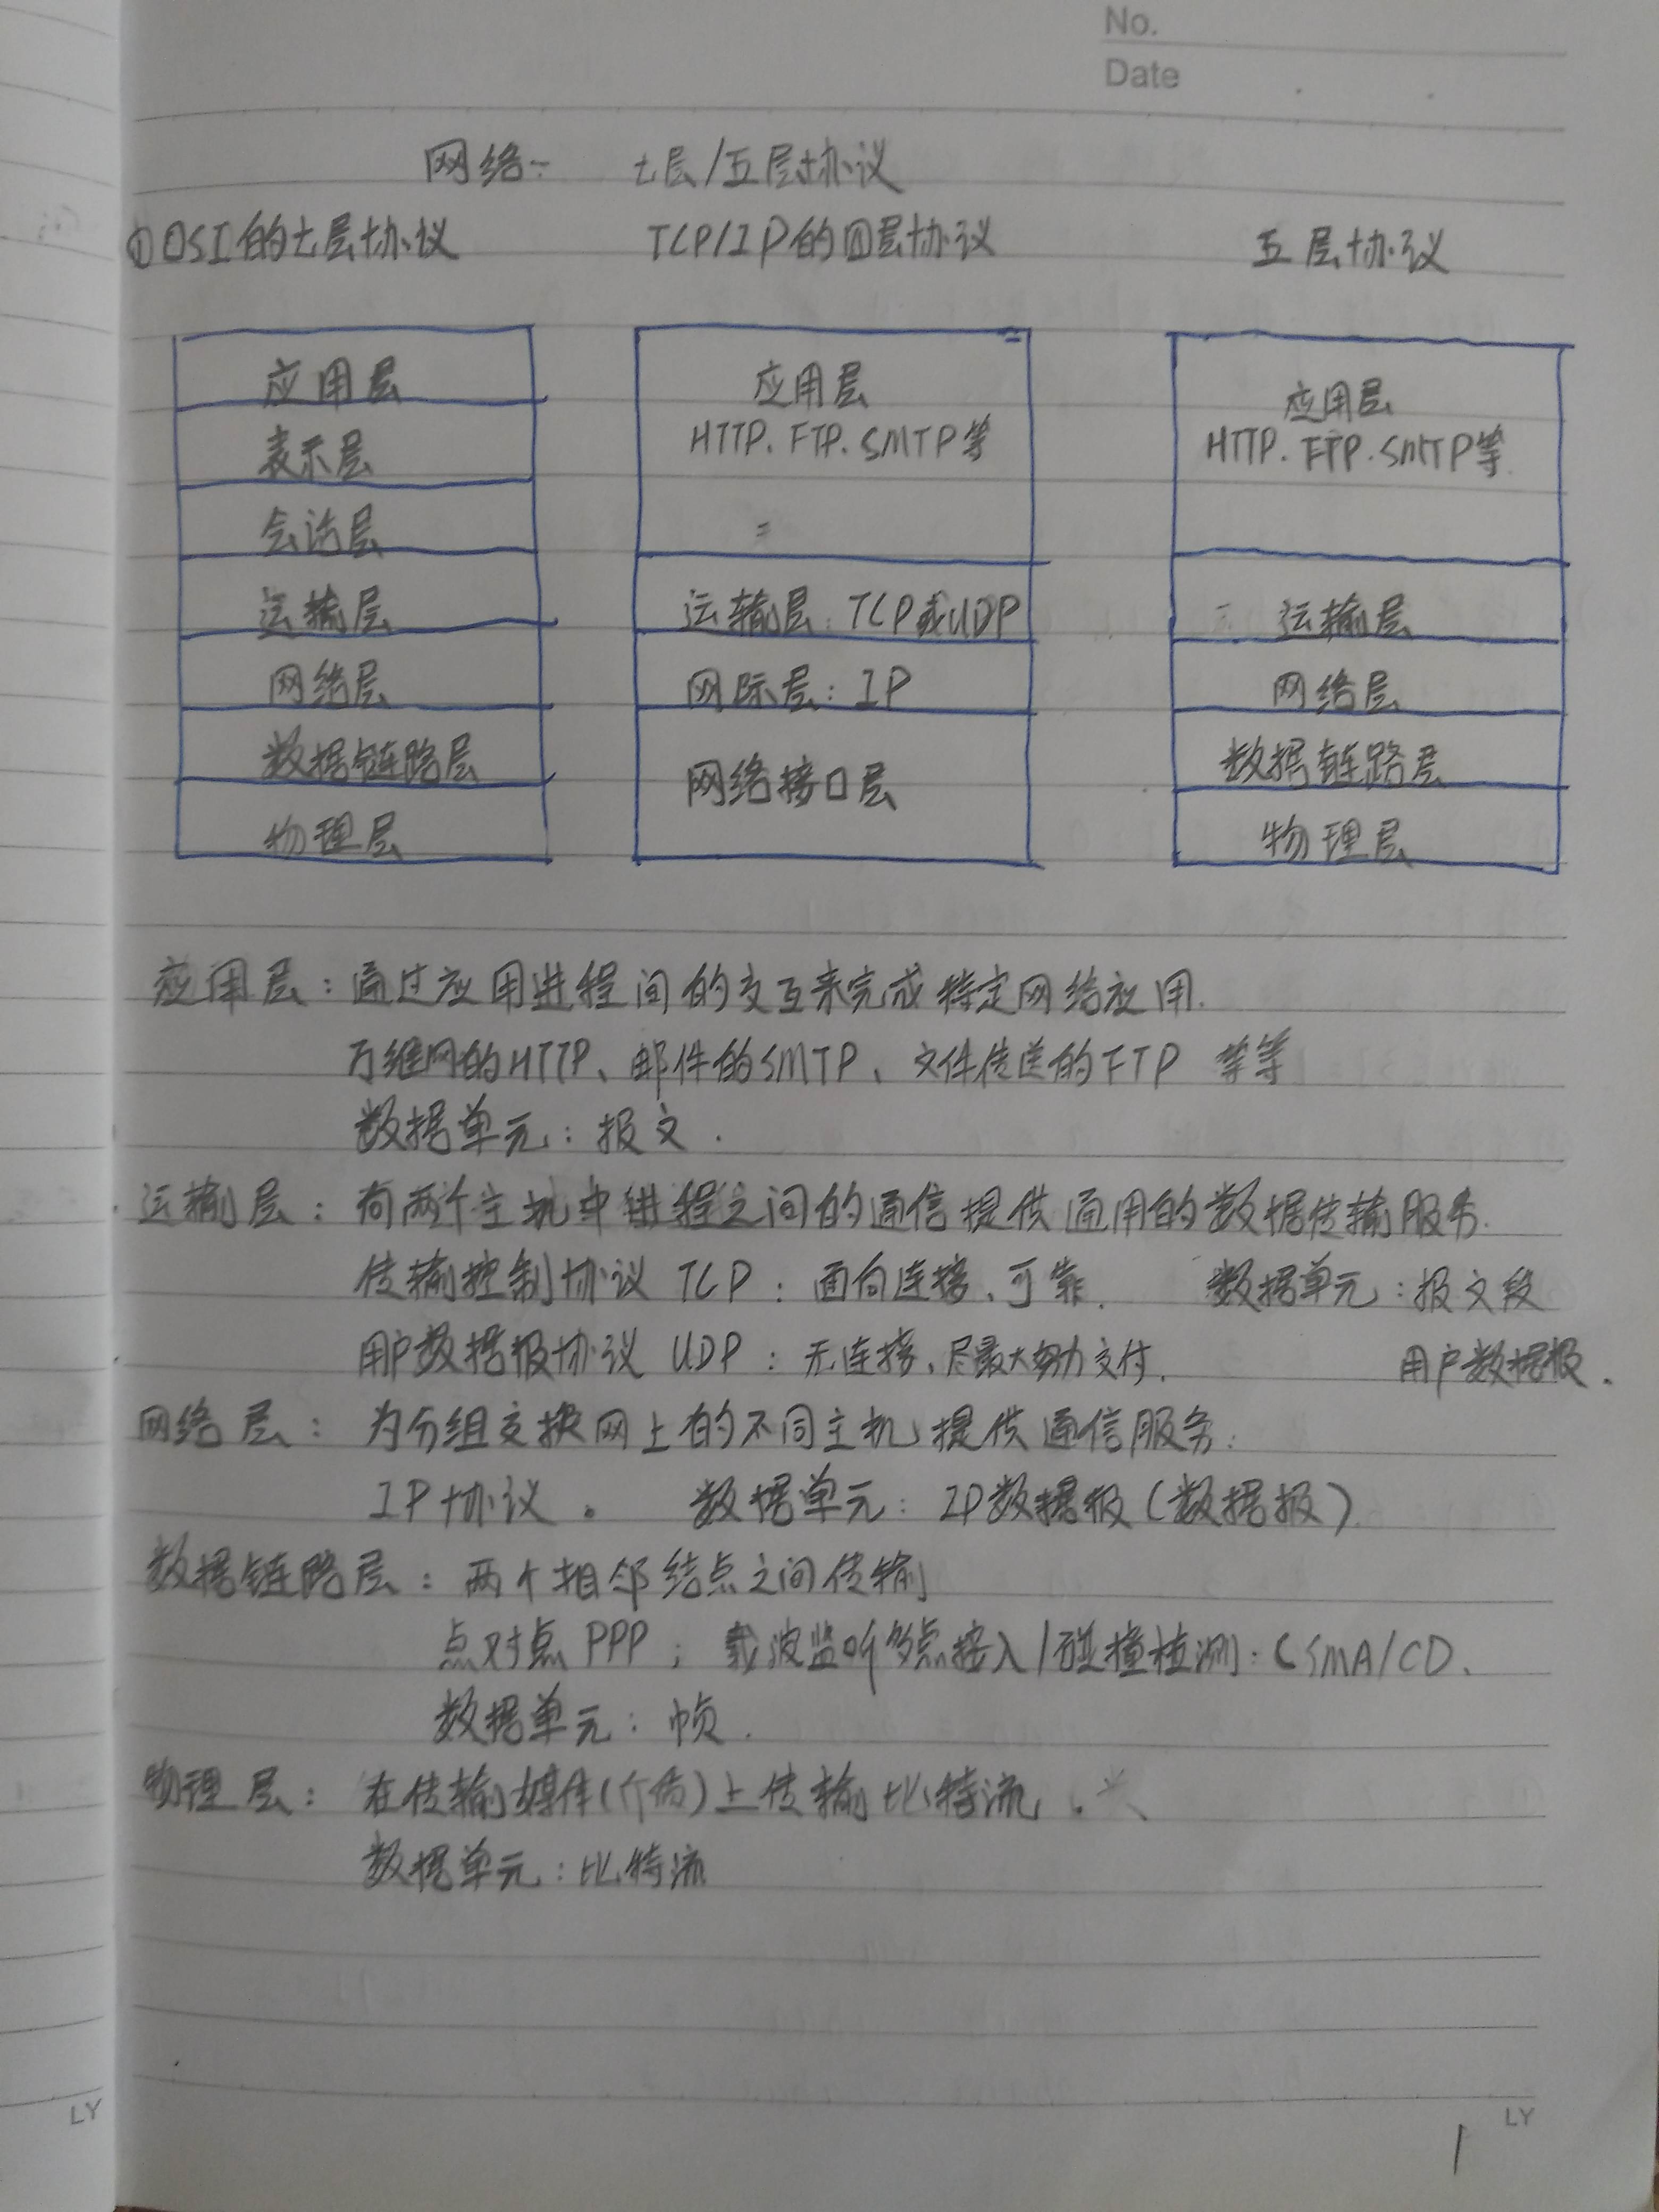 No.
Date
网络: 七层/五层协议
①OSI的七层协议 TCP/IP的四层协议 五层协议
应用层
表示层
会话层
运输层
网络层
数据链路层
物理层
应用层
HTTP.FTP.SMTP等
运输层:TCP或UDP
网际层:IP
网络接口层
应用层
HTTP.FTP.SMTP等
运输层
网络层
数据链路层
物理层
应用层:通过应用进程间的交互来完成特定网络应用.
万维网的HTTP、邮件的SMTP、文件传送的FTP 等等
数据单元:报文.
运输层:向两个主机中进程之间的通信提供通用的数据传输服务.
传输控制协议 TCP:面向连接、可靠. 数据单元:报文段
用户数据报协议 UDP:无连接、尽最大努力交付. 用户数据报.
网络层:为分组交换网上的不同主机提供通信服务:
IP协议。 数据单元:IP数据报(数据报)
数据链路层:两个相邻结点之间传输
点对点PPP;载波监听多点接入/碰撞检测:CSMA/CD、
数据单元:帧.
物理层:在传输媒体(介质)上传输比特流.
数据单元:比特流
LY
LY
1